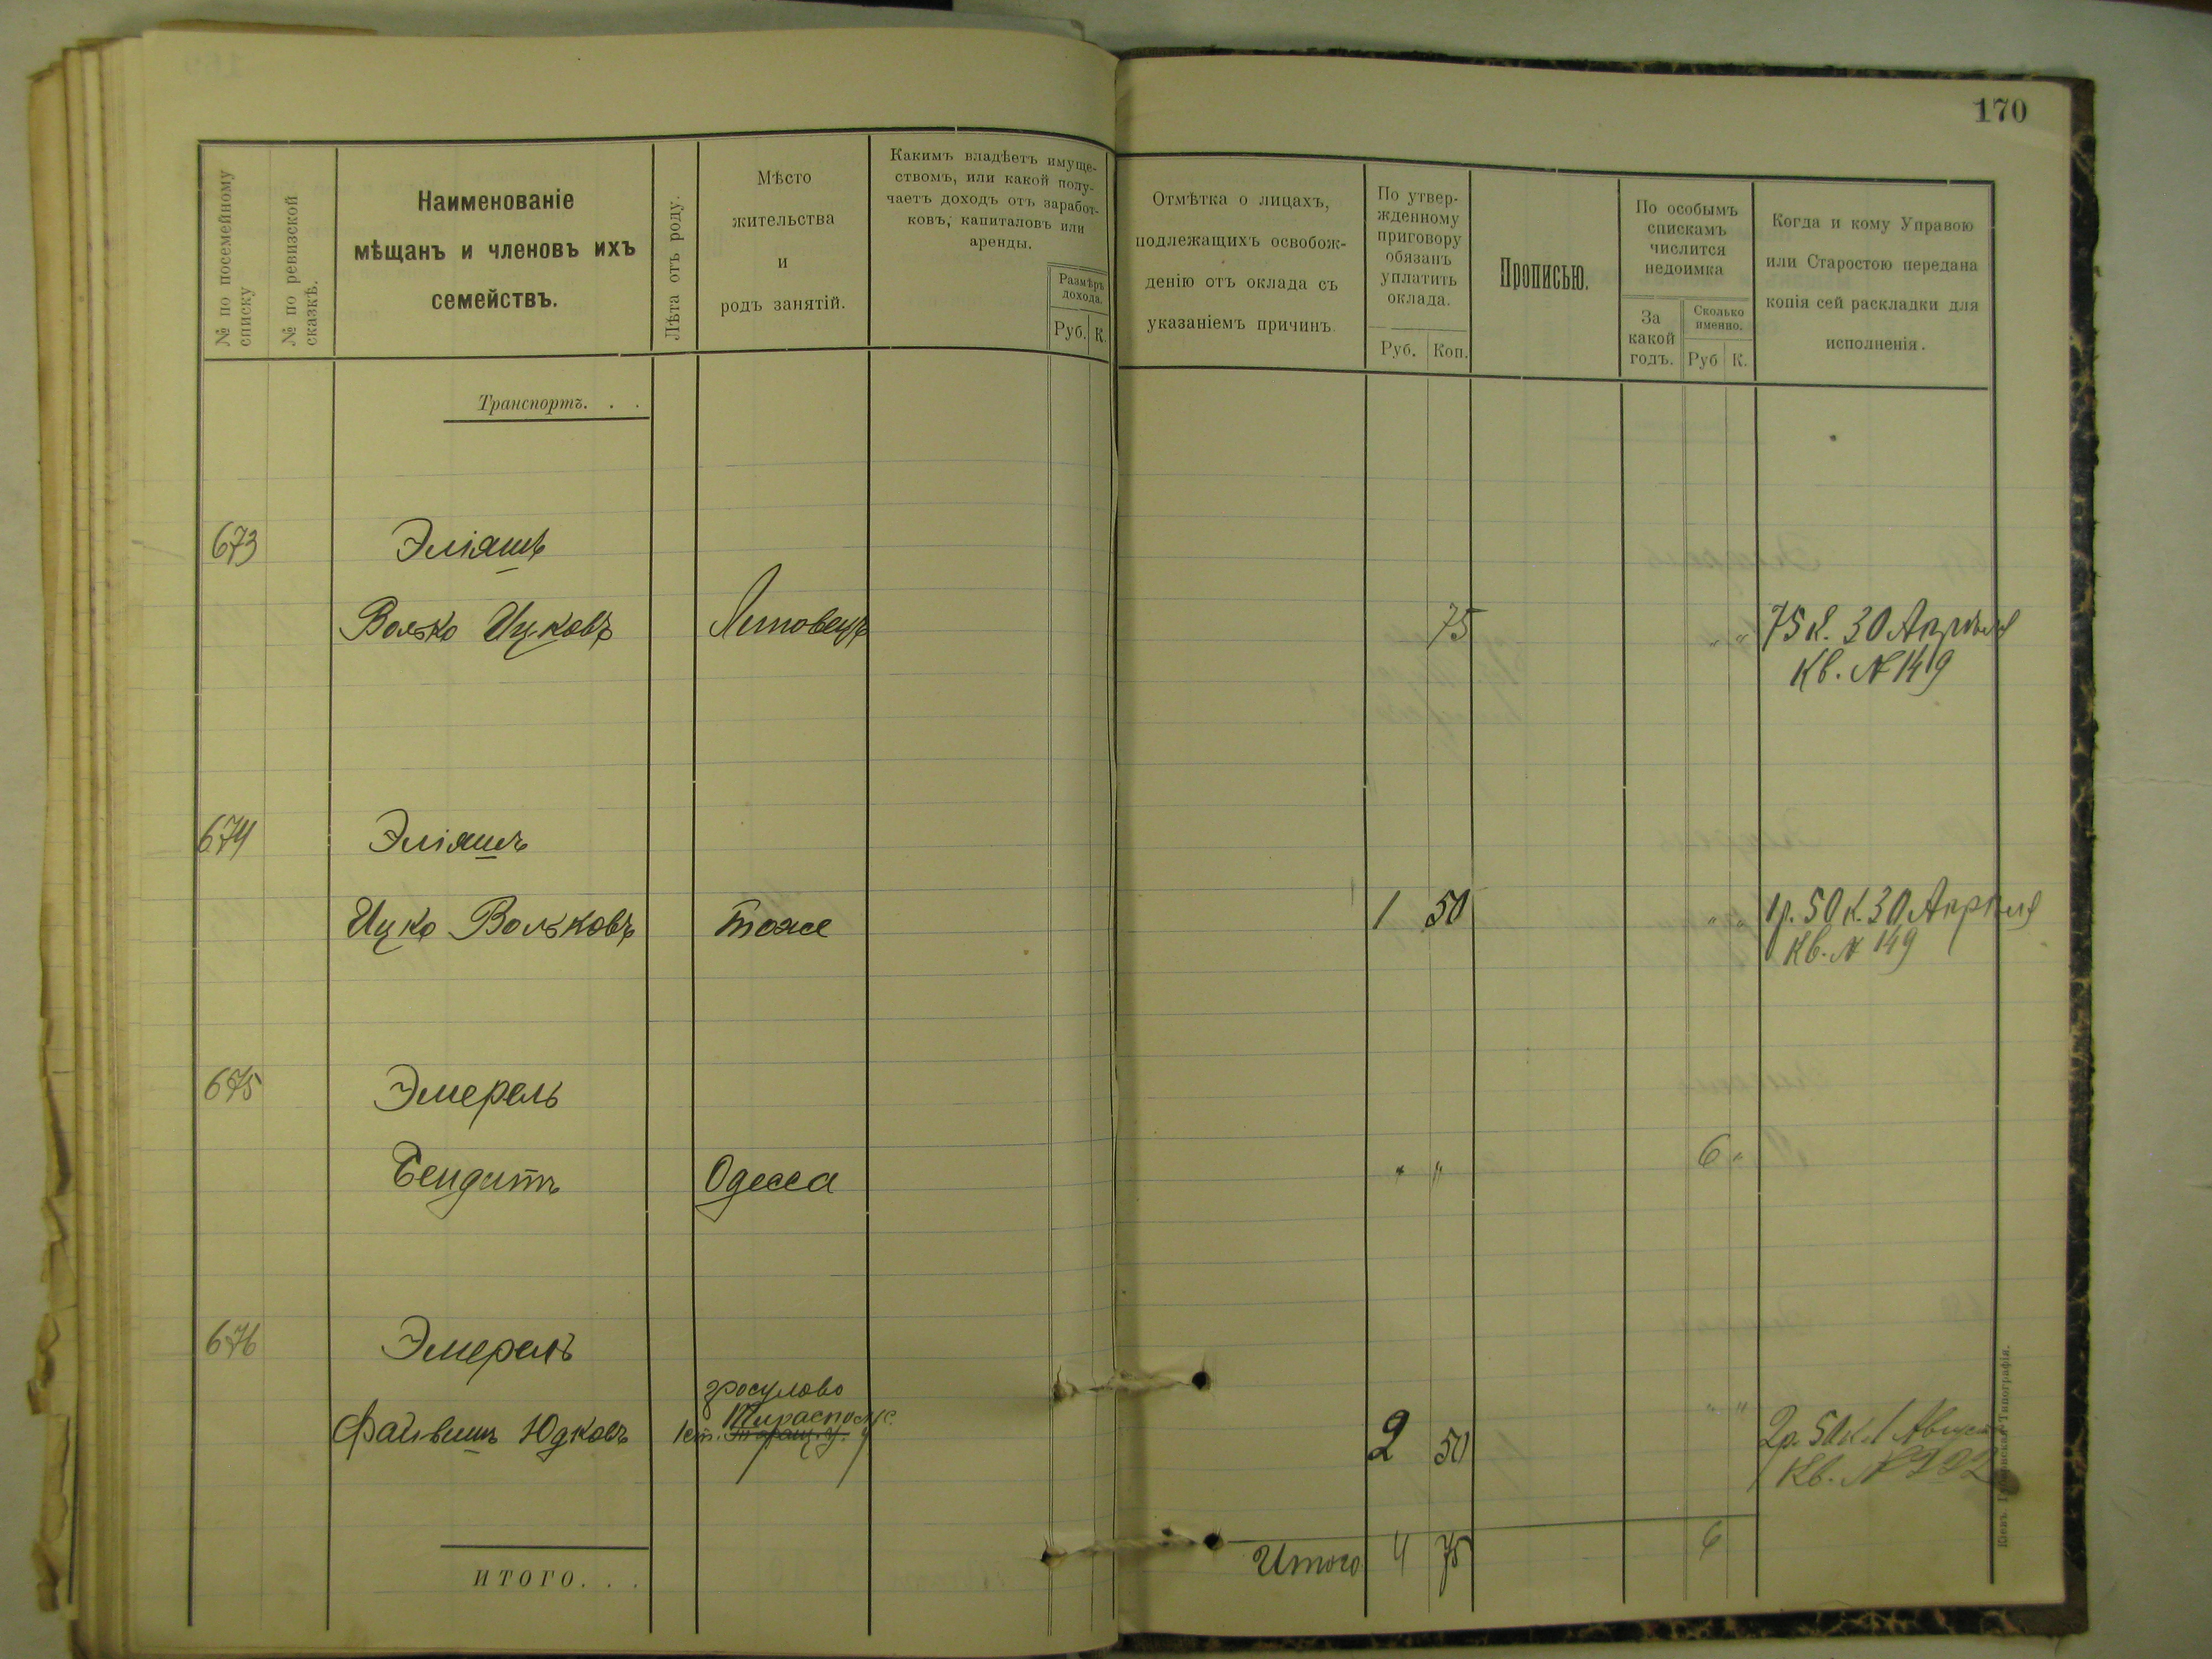 170
№ по посемейному списку
№ по ревизской сказкѣ.
Наименованіе
мѣщанъ и членовъ ихъ
семействъ.
Лѣта отъ роду.
Мѣсто
жительства
и
родъ занятій.
Какимъ владѣетъ имуще-
ствомъ, или какой полу-
чаетъ доходъ отъ заработ-
ковъ, капиталовъ или
аренды.
Размѣръ
дохода.
Руб. К.
Отмѣтка о лицахъ,
подлежащихъ освобож-
денію отъ оклада съ
указаніемъ причинъ
По утвер-
жденному
приговору
обязанъ
уплатить
оклада.
Руб. Коп.
Прописью.
По особымъ
спискамъ
числится
недоимка
За
какой
годъ.
Сколько
именно.
Руб К.
Когда и кому Управою
или Старостою передана
копія сей раскладки для
исполненія.
Транспортъ. . .
673 Эліяшъ
Волько Ицковъ 75 " " 75 к. 30 Апрѣля
Кв. № 149
674 Эліяшъ
Ицко Вольковъ тоже 1 50 " " 1 р. 50 к. 30 Апрѣля
Кв. № 149
675 Эмерель
Бендитъ Одесса " " 6 "
676 Эмерель
гросулово
Тираспольс.
Файвишъ Юдковъ 2 50 " " 2 р. 50 к. 1 Августа
Кв. №
ИТОГО. . .
Итого 4 75 6